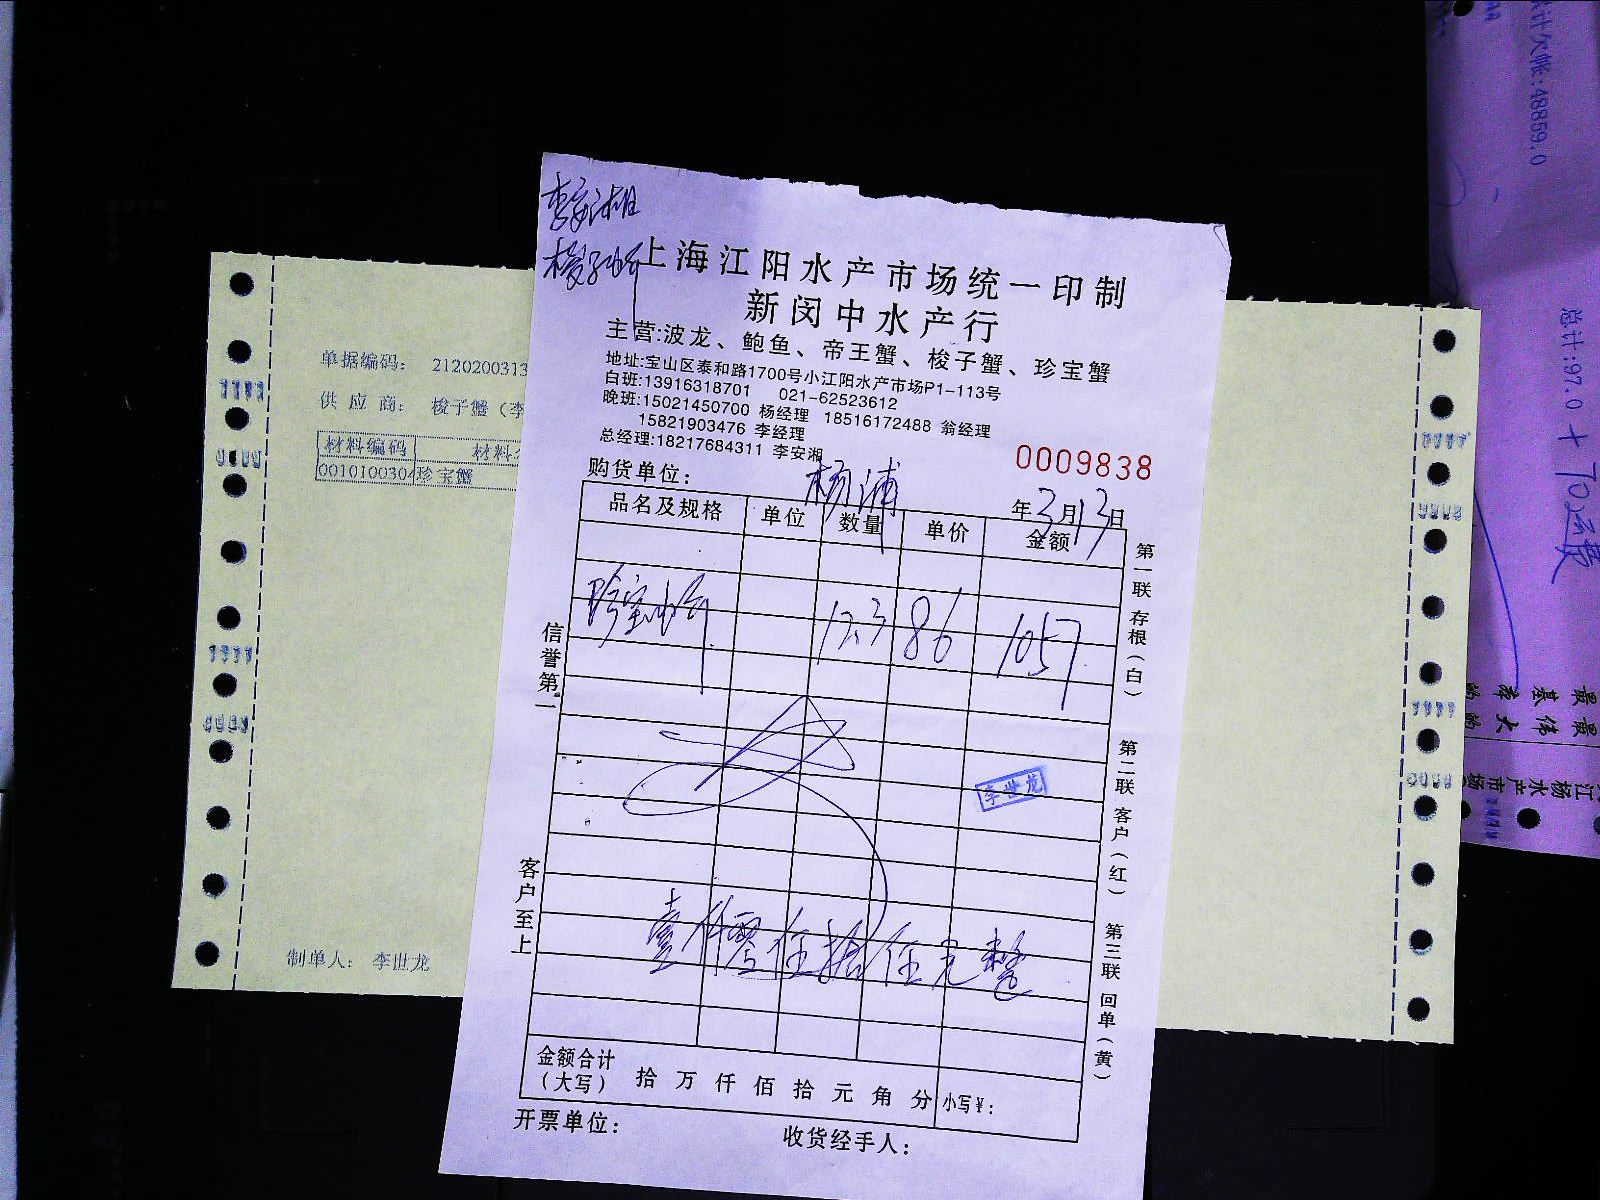 李安湘
梭子蟹
上海江阳水产市场统一印制
新闵中水产行
主营:波龙、鲍鱼、帝王蟹、梭子蟹、珍宝蟹
地址:宝山区泰和路1700号小江阳水产市场P1-113号
白班:13916318701 021-62523612
晚班:15021450700 杨经理 18516172488 翁经理
15821903476 李经理
总经理:18217684311 李安湘
0009838
购货单位: 杨浦
年3月13日
品名及规格 单位 数量 单价 金额
珍宝蟹 12.3 86 1057
李世龙
壹仟零伍拾 元整
金额合计
(大写) 拾 万 仟 佰 拾 元 角 分 小写¥:
开票单位: 收货经手人:
信誉第一
客户至上
第一联 存根(白)
第二联 客户(红)
第三联 回单(黄)
单据编码: 2120200313
供应商: 梭子蟹(李
材料编码 材料
0010100304 珍宝蟹
制单人: 李世龙
计欠帐:48859.0
总计:97.0 +
江杨水产市场